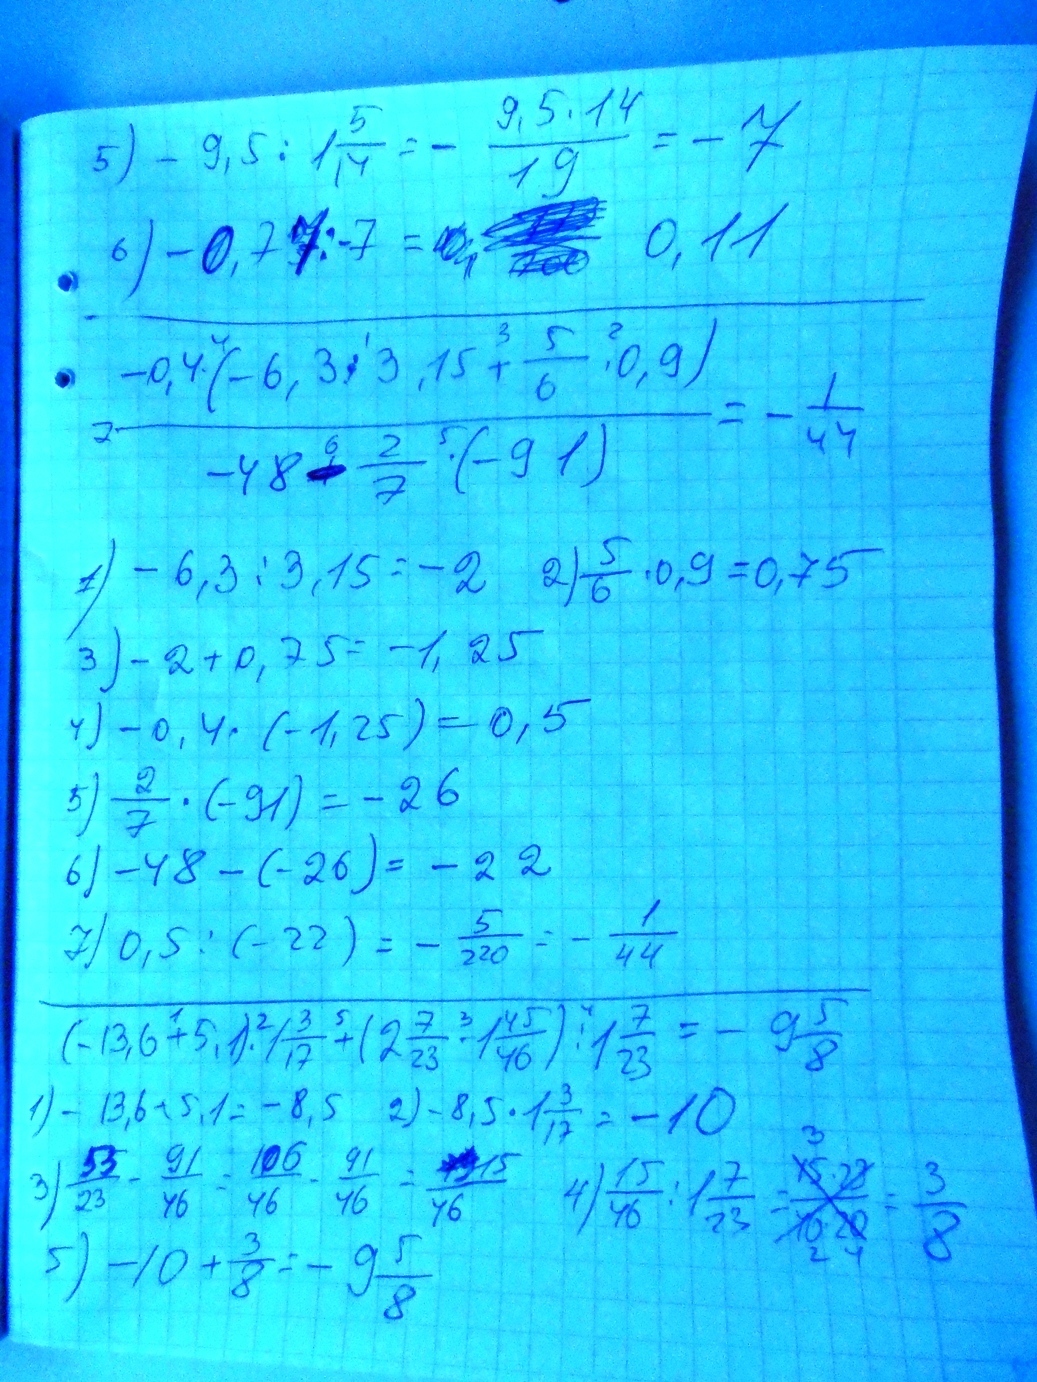 5) - 9,5 : 1 5/14 = - 9,5·14/19 = - 7
6) - 0,77 : -7 = 0,11
-0,4·(-6,3 : 3,15 + 5/6 · 0,9) / -48 - 2/7 · (-91) = - 1/44
1) - 6,3 : 3,15 = - 2 2) 5/6 · 0,9 = 0,75
3) - 2 + 0,75 = -1,25
4) - 0,4 · (-1,25) = 0,5
5) 2/7 · (-91) = - 26
6) -48 - (-26) = - 22
7) 0,5 : (-22) = - 5/220 = - 1/44
(-13,6 + 5,1) · 1 3/17 + (2 7/23 - 1 45/46) : 1 7/23 = - 9 5/8
1) - 13,6 + 5,1 = - 8,5 2) - 8,5 · 1 3/17 = - 10
3) 53/23 - 91/46 = 106/46 - 91/46 = 15/46 4) 15/46 : 1 7/23 = = 3/8
5) - 10 + 3/8 = - 9 5/8